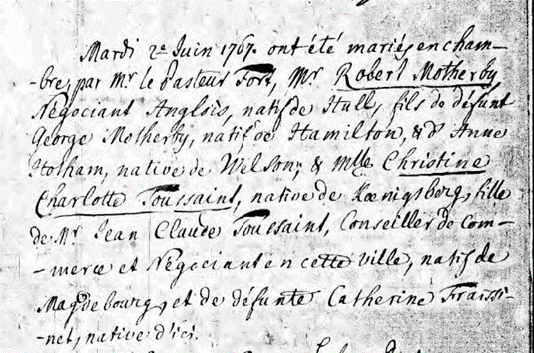 Mardi 2e Juin 1767. ont été mariés en cham-
-bre, par Mr. le Pasteur Fort, Mr. Robert Motherby
Négociant Anglois, natif de Hull, fils de défunt
George Motherby, natif de Hamilton, & d'Anne
Hotham, native de Welson; & Mlle Christine
Charlotte Toussaint, native de Kœnigsberg, fille
de Mr. Jean Claude Toussaint, Conseiller de Com-
-merce et Négociant en cette ville, natif de
Magdebourg, et de défunte Catherine Fraissi-
net, native d'ici.